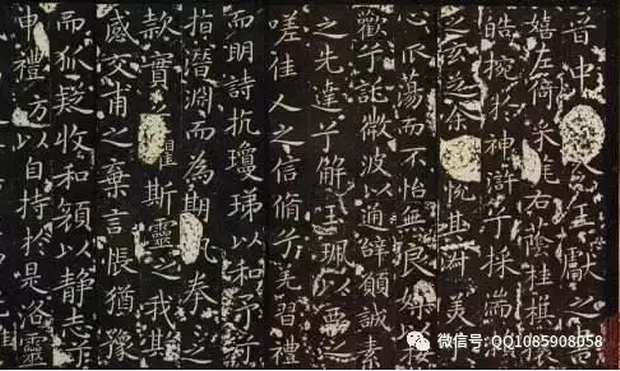 晉中王獻之書
嬉左倚采旄右蔭桂旗攘
皓捥於神滸兮採湍瀨
之玄芝余悅其淑美兮
心振蕩而不怡無良媒以接
歡兮託微波以通辭願誠素
之先達兮解玉珮以要之
嗟佳人之信脩兮羌習禮
而明詩抗瓊珶以和予兮
指潛淵而為期執拳之
款實兮懼斯靈之我其
感交甫之棄言悵猶豫
而狐疑收和顏以静志兮
申禮方以自持於是洛靈
微信号: QQ1085908058